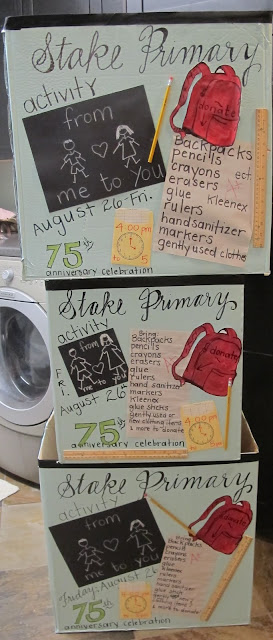 Stake Primary
activity
from
me to you
August 26 Fri.
75th
anniversary celebration
4:00 pm
to 5
donate
Backpacks
pencils
crayons ect.
erasers A+
glue Kleenex
rulers
hand sanitizer
markers
gently used clothe
Stake Primary
activity
from
me to you
FRI.
August 26
75th
anniversary celebration
Bring:
Backpacks
pencils
crayons
erasers
glue
rulers
hand sanitizer
markers
Kleenex
glue sticks
Gently used or
new clothing items
& more to donate
donate
4:00 pm
Stake Primary
activity
from
me to you
Friday, August 26
75th
anniversary celebration
donate
Bring
Backpacks
pencils
crayons
erasers
glue
Kleenex
rulers
markers